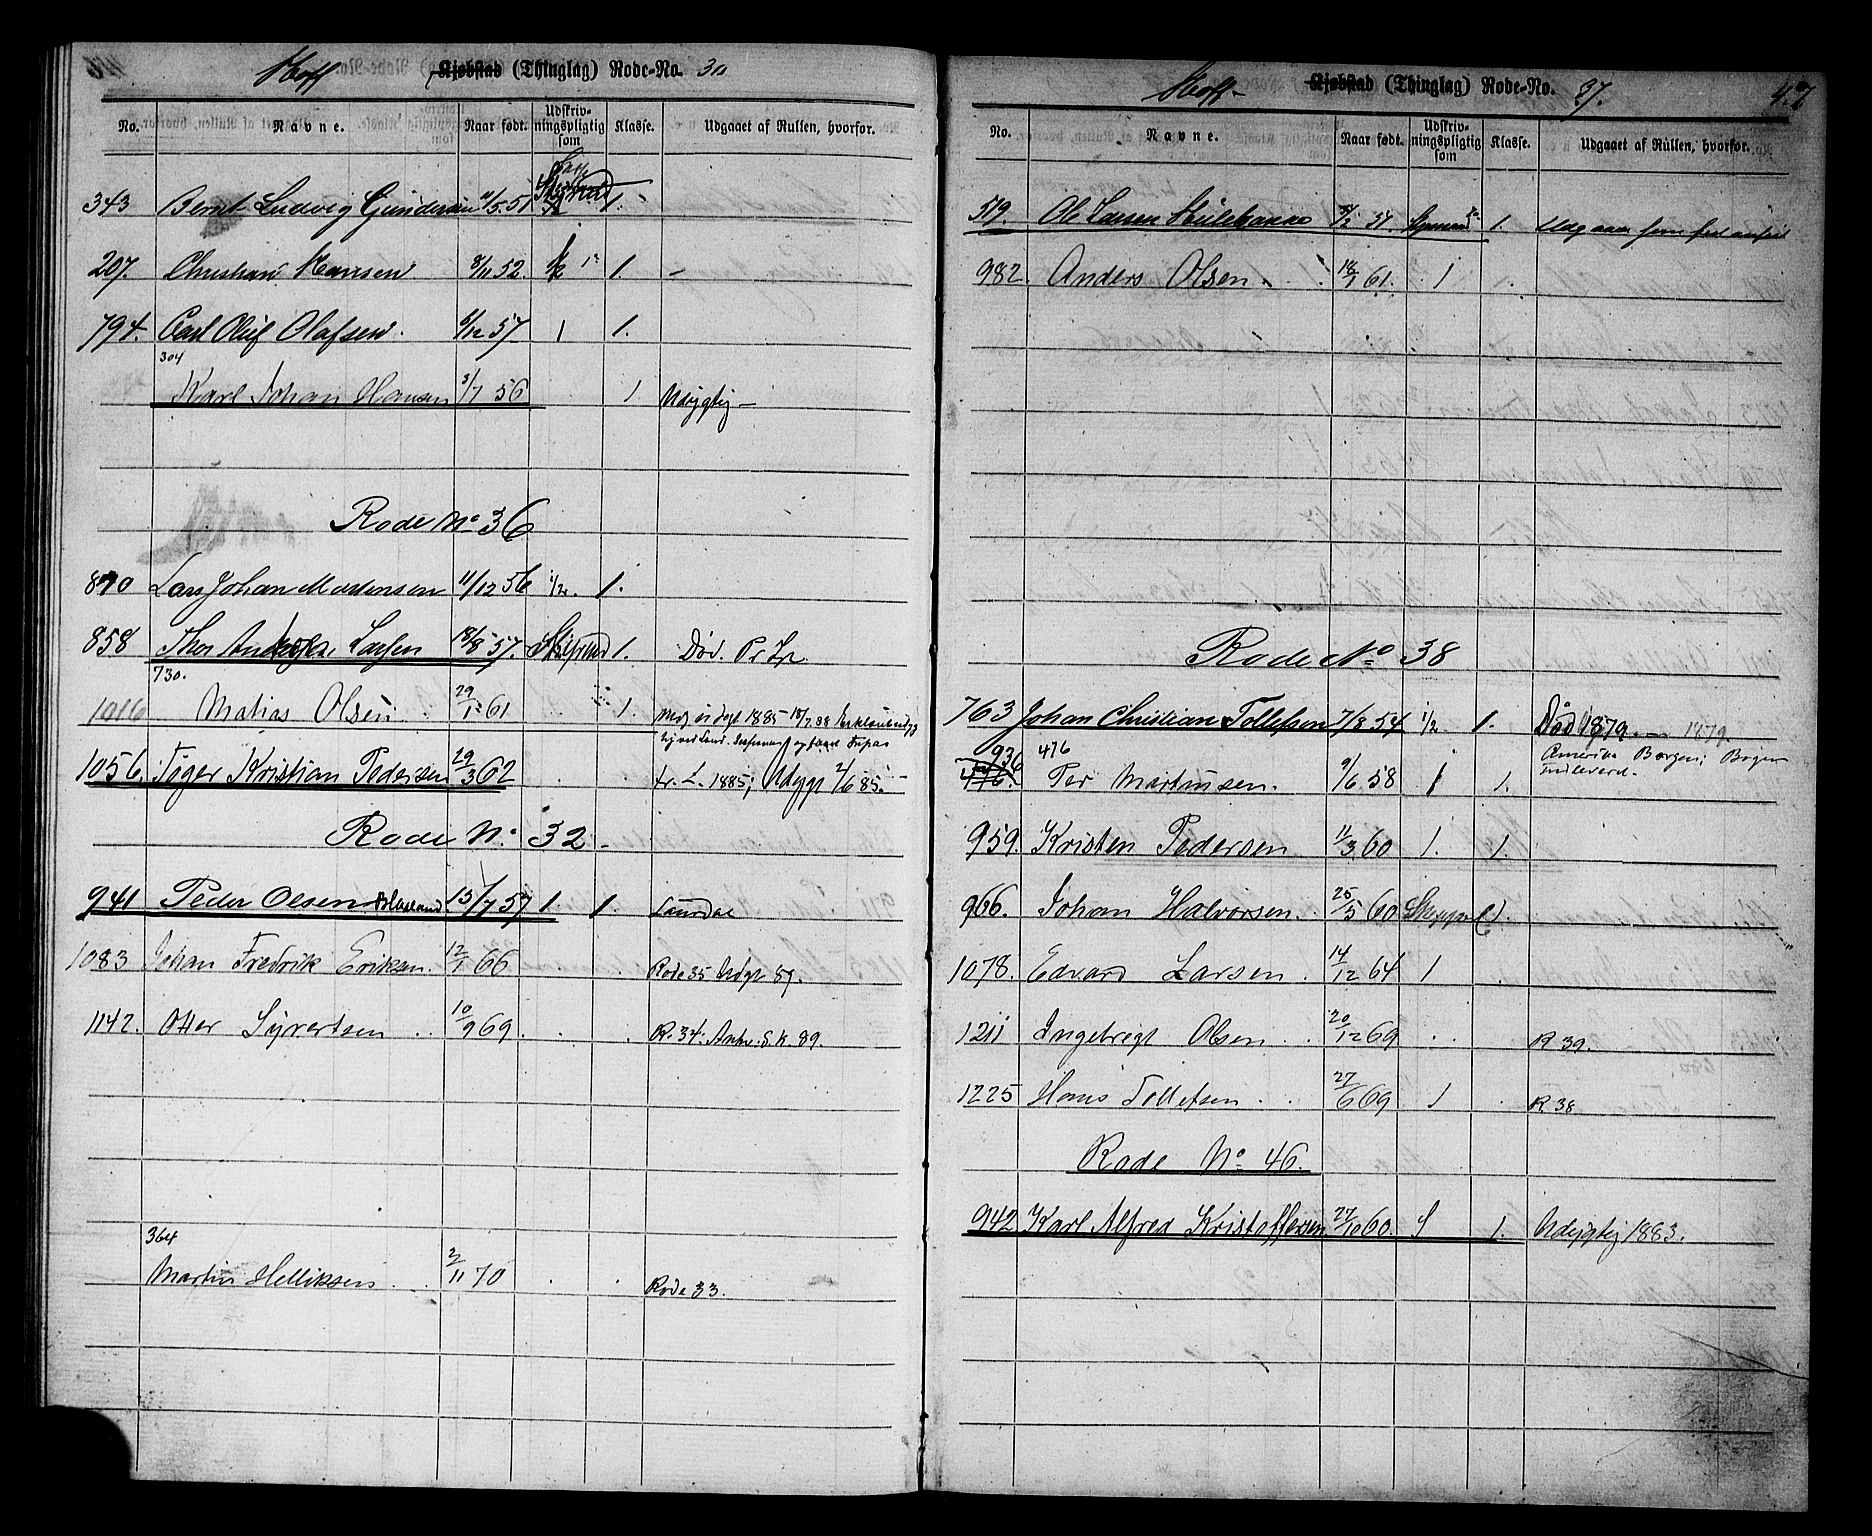 Hoff Kjøbstad (Thinglag) Rode-No. 30
No. Navne. Naar født. Udskriv-ningspligtig som Klasse. Udgaaet af Rullen, hvorfor.
343 Bernt Ludvig Gundersen 11/5 51 1.
207. Christian Hansen 8/11 52 1/2 1. -
794. Carl Oluf Olafsen. 6/12 57 1 1.
304
Karl Johan Hansen 3/7 56 1 Udygtig -
Rode No 36
870 Lars Johan Mortensen 11/12 56 1/2. 1.
858 Thor Larsen 18/8 57. 1. Død. Pr
730.
1016 Matias Olsen 29/1 61 1. 1885
1056. Tøger Kristian Pedersen 29/3 62 L. 1885; Udygt 2/6 85.
Rode No. 32 -
941 Peder Olsen 15/7 57 1. 1.
1083 Johan Fredrik Eriksen. 12/1 66 Rode 35 Udgt 89.
1142. Otter Syvertsen 10/9 69. R. 34. S.K. 89.
364
Martin Helliksen 2/11 70 Rode 33.
Hoff - Kjøbstad (Thinglag) Rode-No. 37. 47
No. Navne. Naar født. Udskriv-ningspligtig som Klasse. Udgaaet af Rullen, hvorfor.
519. Ole Larsen 1.
982. Anders Olsen. 18/1 61. 1
Rode No 38
763 Johan Christian Tollefsen 7/8 54 1/2 1. Død 1879. 1879.
936 476 Amerika Borgen; Bogen
476. Per Martinsen. 9/6 58 1 1. indleverd.
959. Kristen Pedersen 11/3 60 1. 1.
966. Johan Halvorsen. 25/5 60 1.
1078. Edvard Larsen 14/12 64 1
1211 Ingebregt Olsen 20/12 69 R 39.
1225 Hans Tollefsen. 27/6 69 1 R 38
Rode No 46.
942 Karl Alfred Kristoffersen 27/10 60. S 1. Udygtig 1883.